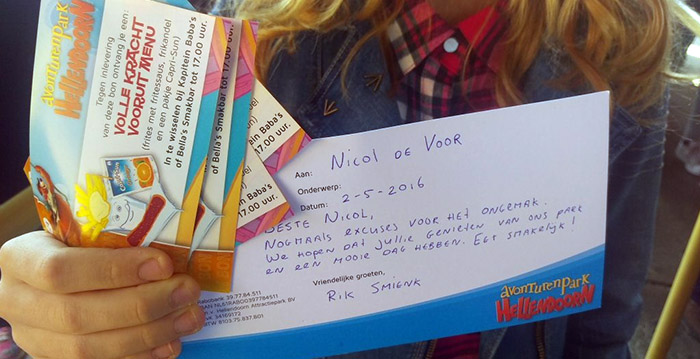 avonturenpark
HELLENDOORN
Tegen inlevering
van deze bon ontvang je een:
VOLLE KRACHT
VOORUIT MENU
(frites met fritessaus, frikandel
en een pakje Capri-Sun)
In te wisselen bij Kapitein Baba's
of Bella's Smakbar tot 17.00 uur.
17.00 uur.
Kapitein Baba's
17.00 uur.
Baba's
17.00 uur.
Aan: NICOL DE VOOR
Onderwerp:
Datum: 2-5-2016
BESTE NICOL,
NOGMAALS EXCUSES VOOR HET ONGEMAK.
WE HOPEN DAT JULLIE GENIETEN VAN ONS PARK
EN EEN MOOIE DAG HEBBEN. EET SMAKELIJK!
Vriendelijke groeten,
RIK SMIENK
Rabobank 39.77.84.511
Hellendoorn Attractiepark BV
34169172
BTW 8103.75.837.B01
avonturenpark
HELLENDOORN